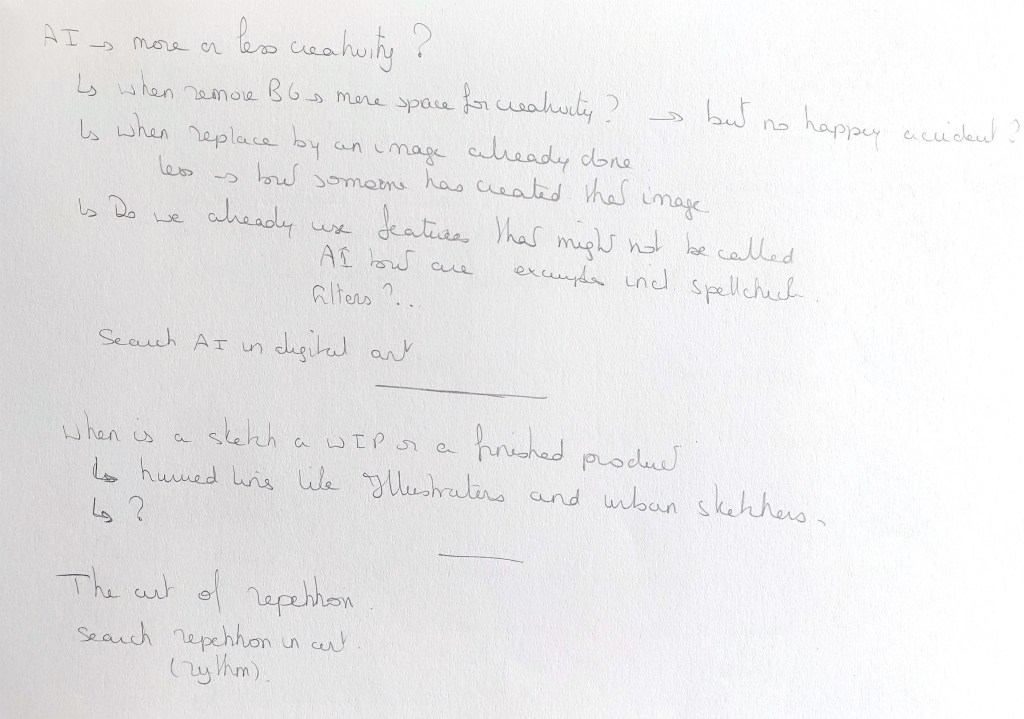 AI → more or less creativity ?
↳ when remove BG → more space for creativity ? → but no happy accident ?
↳ when replace by an image already done
less → but someone has created that image
↳ Do we already use features that might not be called
AI but are examples incl spellcheck.
filters ?..
Search AI in digital art
When is a sketch a WIP or a finished product
↳ lines like Illustrators and urban sketchers.
↳ ?
The art of repetition.
Search repetition in art.
(rythm).